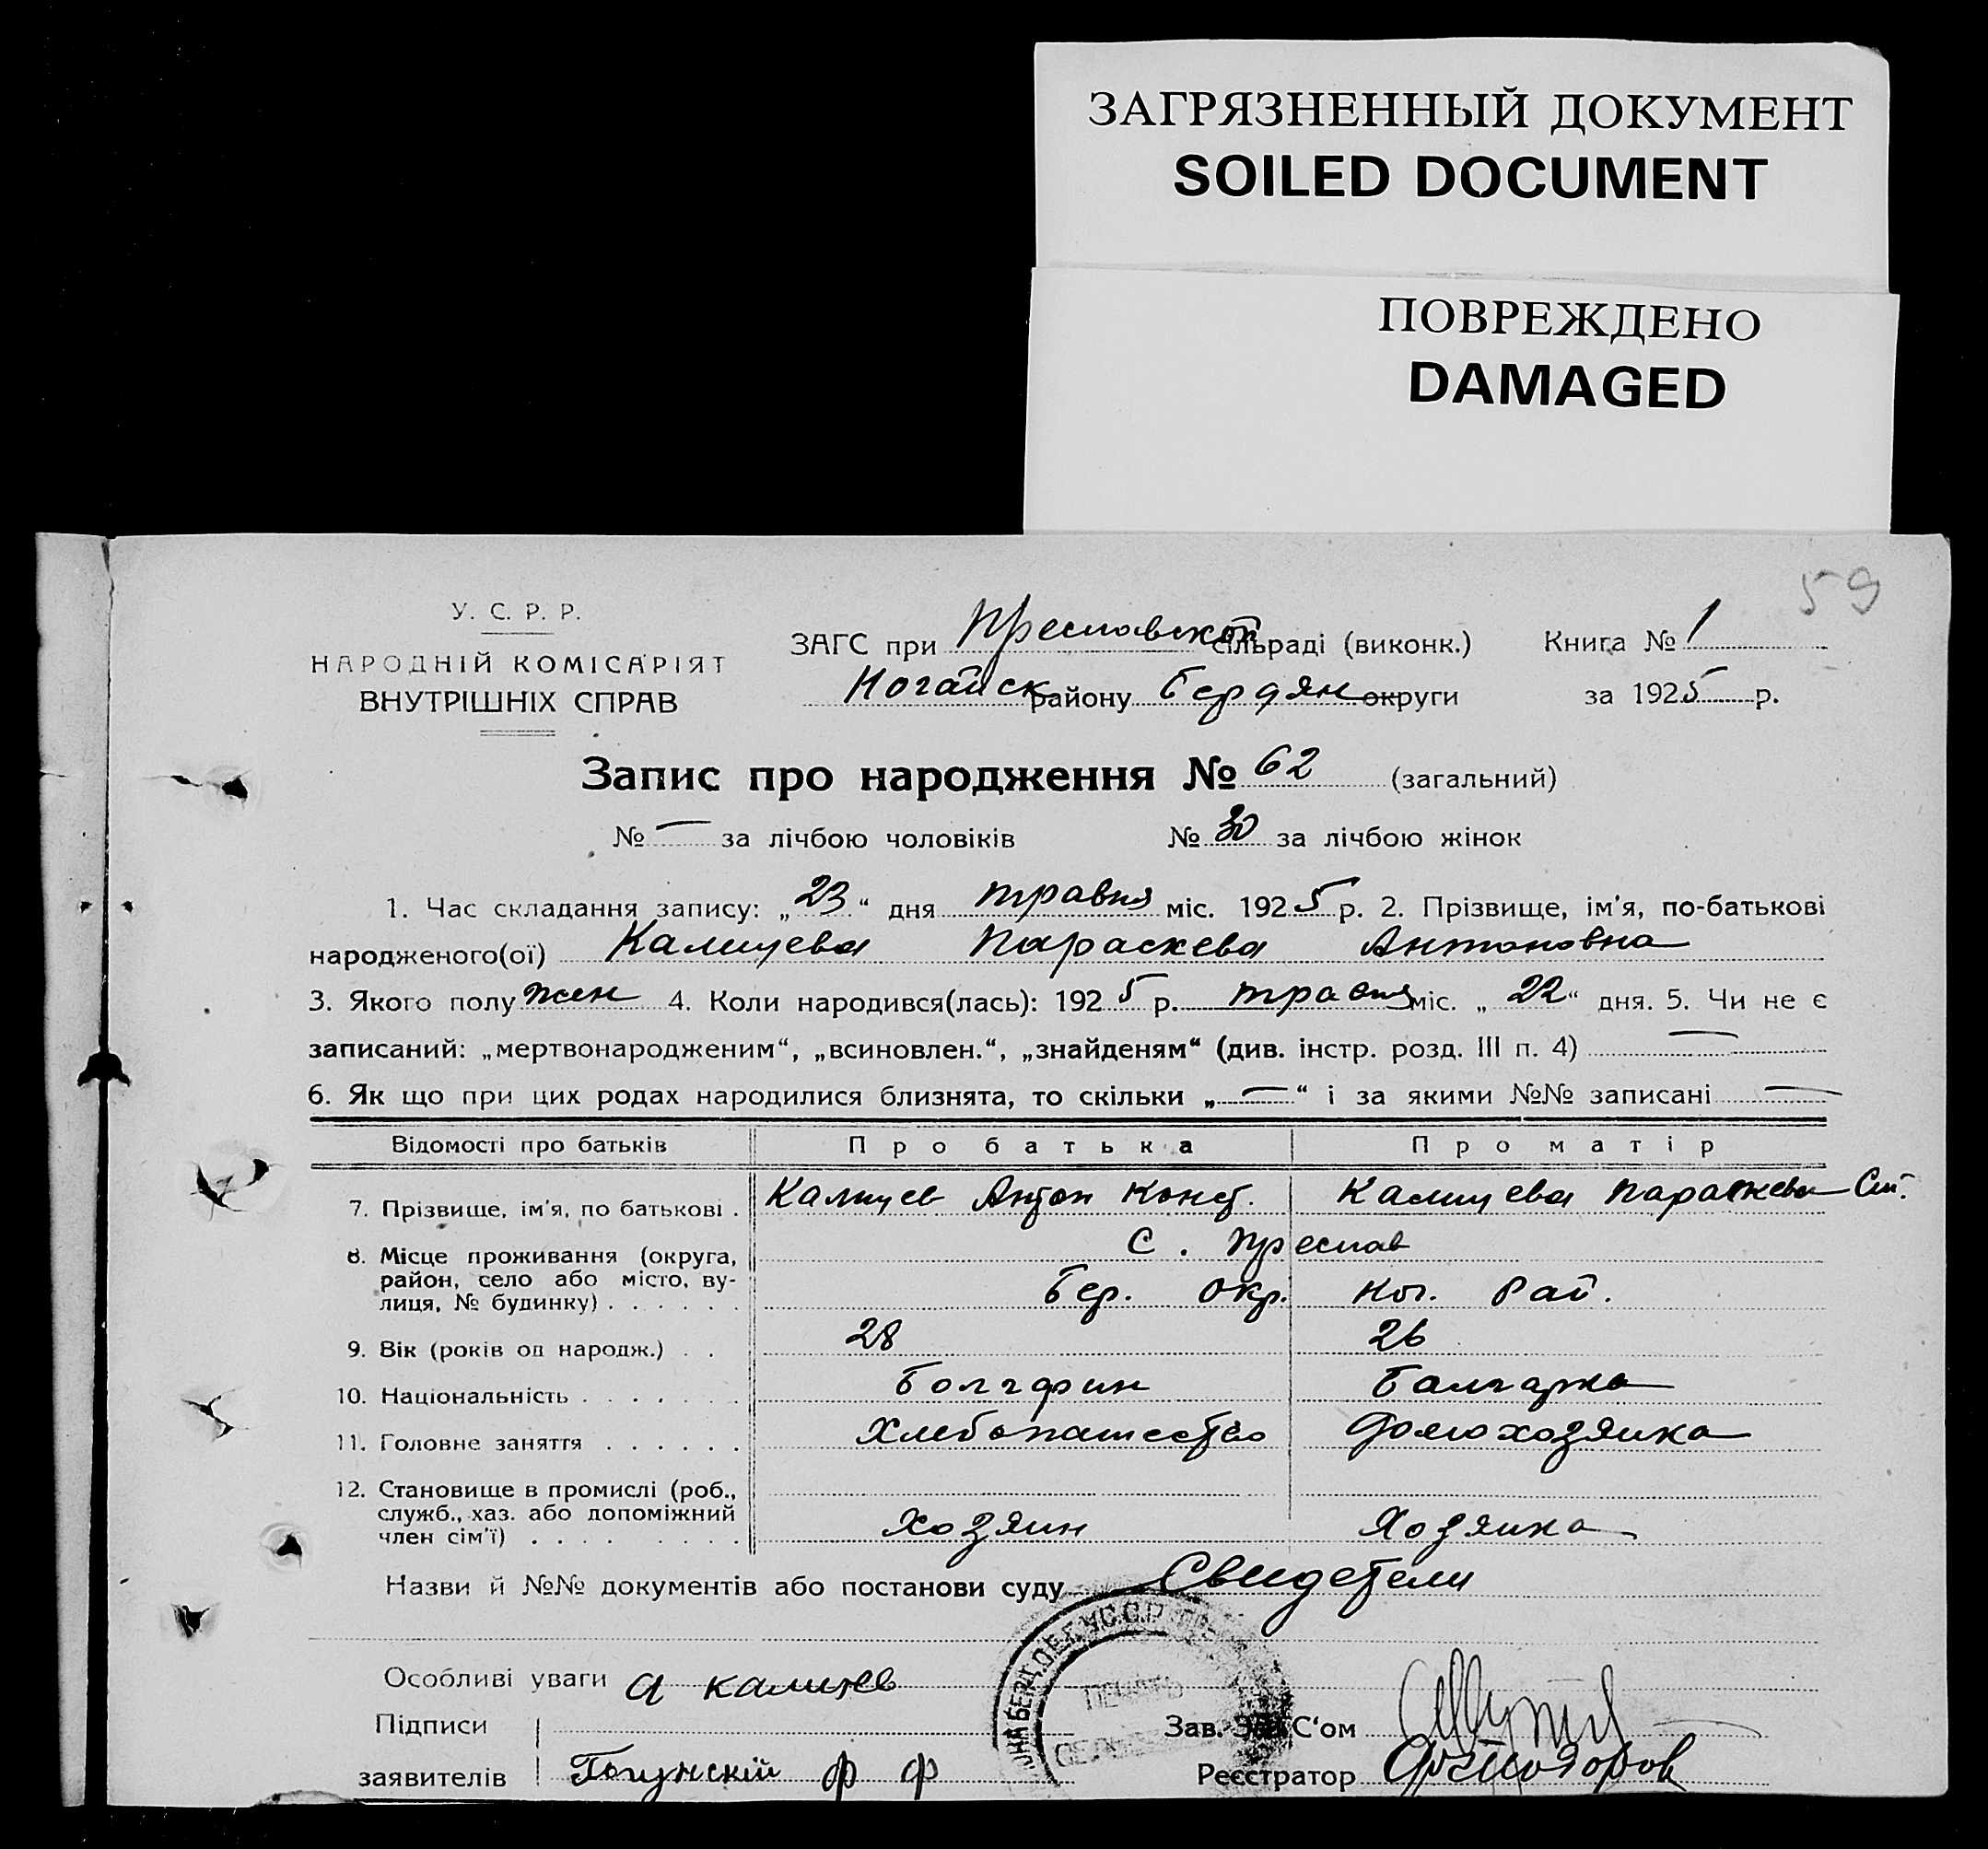 ЗАГРЯЗНЕННЫЙ ДОКУМЕНТ
SOILED DOCUMENT
ПОВРЕЖДЕНО
DAMAGED
59
У. С. Р. Р.
НАРОДНІЙ КОМІСАРІЯТ
ВНУТРІШНІХ СПРАВ
ЗАГС при Преславской сільраді (виконк.) Книга № 1
Ногайск району Бердян округи за 1925 р.
Запис про народження № 62 (загальний)
№ — за лічбою чоловіків № 30 за лічбою жінок
1. Час складання запису: „23“ дня травня міс. 1925 р. 2. Прізвище, ім'я, по-батькові
народженого(ої) Калицева Параскева Антоновна
3. Якого полу жен 4. Коли народився(лась): 1925 р. травня міс. „22“ дня. 5. Чи не є
записаний: „мертвонародженим“, „всиновлен.“, „знайденям“ (див. інстр. розд. III п. 4) —
6. Як що при цих родах народилися близнята, то скільки „—“ і за якими №№ записані —
Відомості про батьків Про батька Про матір
7. Прізвище, ім'я, по батькові . Калицев Антон Конст. Калицева Параскева
8. Місце проживання (округа, С. Преслав
район, село або місто, ву-
лиця, № будинку) . . . . . . Бер. Окр. Ног. Рай.
9. Вік (років од народж.) . . 28 26
10. Національність . . . . . . . Болгарин Балгарка
11. Головне заняття . . . . . . Хлебопашество Домохозяйка
12. Становище в промислі (роб.,
служб., хаз. або допоміжний
член сім'ї) . . . . . . . . Хозяин Хозяйка
Назви й №№ документів або постанови суду Свидетели
Особливі уваги А Калицев
Підписи Зав. ЗАГС‘ом
заявителів Ф Ф Реєстратор